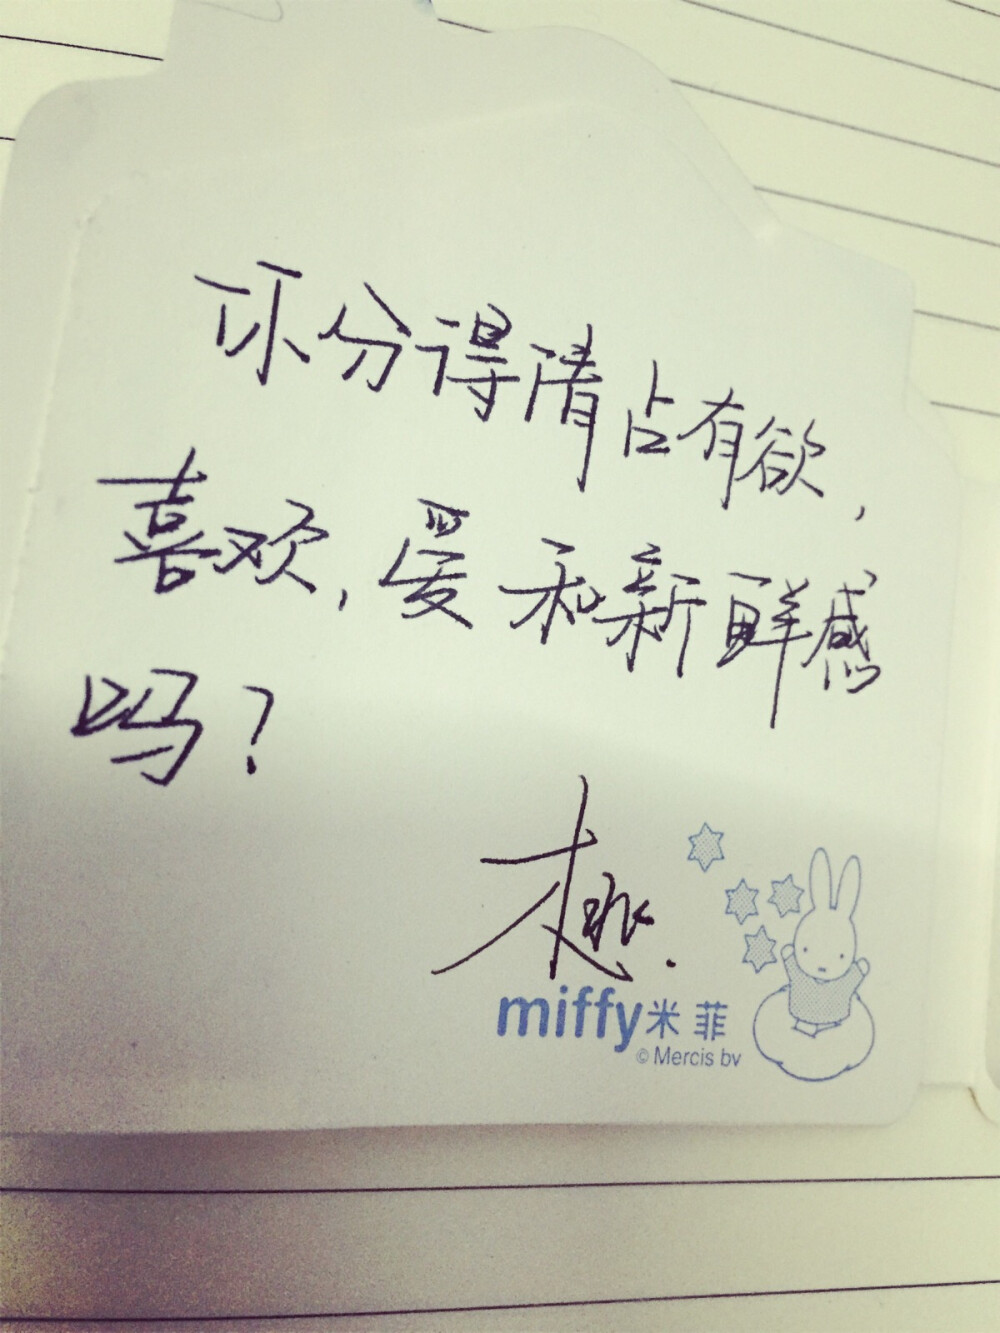 你分得清占有欲,
喜欢,爱和新鲜感
吗?
miffy米菲
© Mercis bv